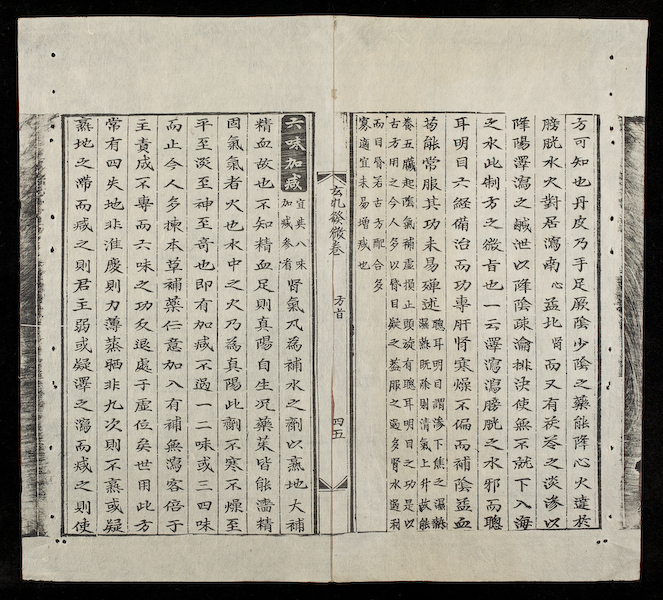 方可知也丹皮乃手足厥陰少陰之藥能降心火達於
膀胱水火對居瀉南心益北腎而又有茯苓之淡滲以
降陽澤瀉之鹹泄以降陰疏瀹排決使無不就下入海
之水此制方之微旨也一云澤瀉瀉膀胱之水邪而聰
耳明目六經備治而功專肝腎寒燥不偏而補陰益血
苟能常服其功未易殫述聰耳明目謂滲下焦之濕熱
濕熱既除則清氣上升故能
養五臟起陰氣補虛損止頭旋有聰耳明目之功是以
古方用之今人多以昏目疑之蓋服之過多腎水過利
而目昏若古方配合多
寡適宜未易增減也
玄孔發微卷
方首
四五
六味加減宜與八味
加減參看腎氣凡為補水之劑以熟地大補
精血故也不知精血足則真陽自生况藥菜皆能濇精
固氣氣者火也水中之火乃為真陽此劑不寒不燥至
平至淡至神至奇也即有加減不過一二味或三四味
而止今人多揀本草補藥仁意加入有補無瀉客倍于
主責成不專而六味之功反退處于虛位矣世用此方
常有四失地非淮慶則力薄蒸晒非九次則不熟或疑
熟地之滯而減之則君主弱或疑澤之瀉而減之則使